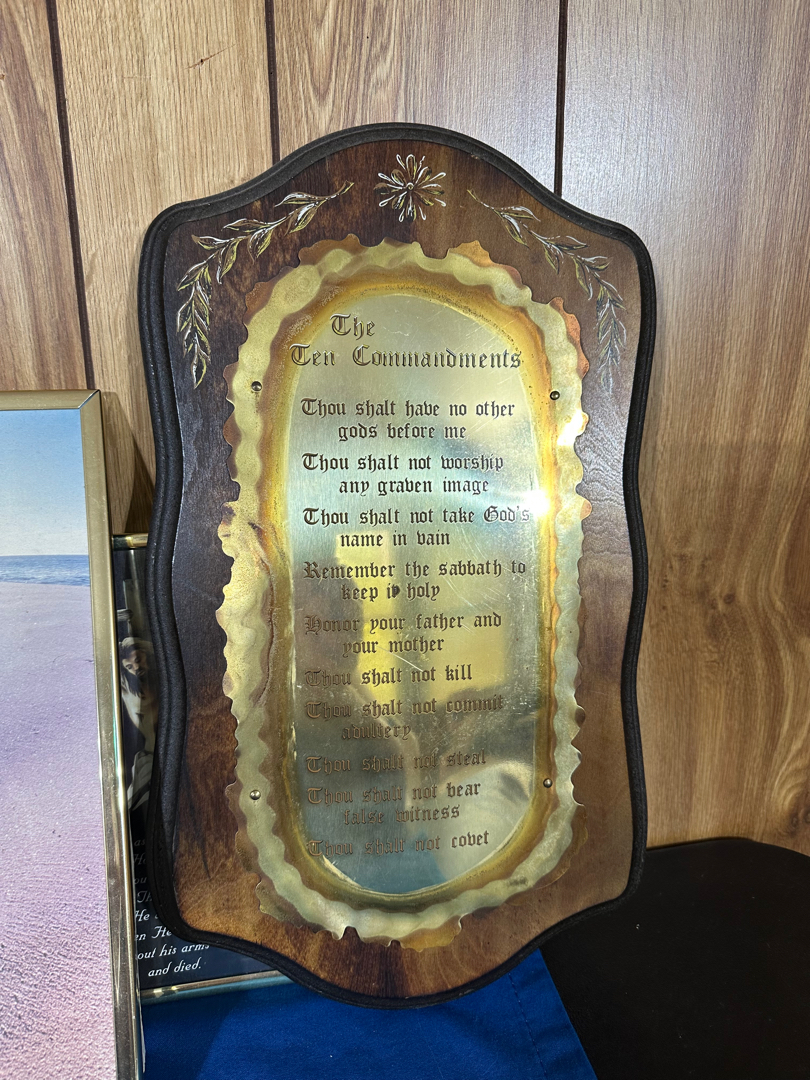 The
Ten Commandments
Thou shalt have no other
gods before me
Thou shalt not worship
any graven image
Thou shalt not take God's
name in vain
Remember the sabbath to
keep it holy
Honor your father and
your mother
Thou shalt not kill
Thou shalt not commit
adultery
Thou shalt not steal
Thou shalt not bear
false witness
Thou shalt not covet
He
out his arms
and died.